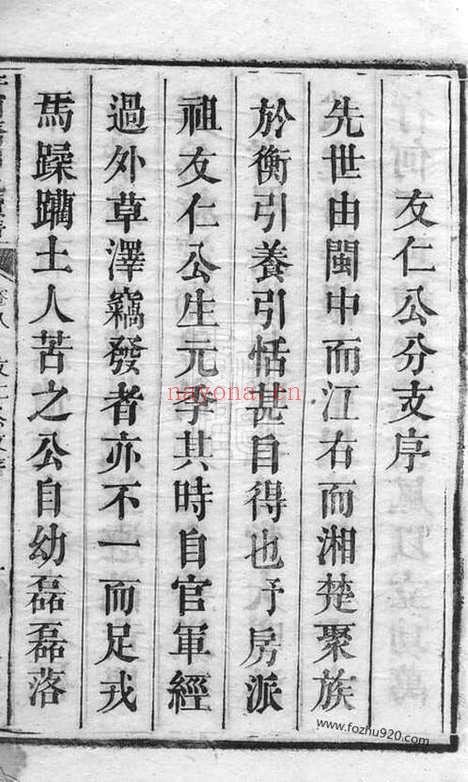 友仁公分支序
先世由閩中而江右而湘楚聚族
於衡引養引恬甚自得也予房派
祖友仁公生元季其時自官軍經
過外草澤竊發者亦不一而足戎
馬蹂躪土人苦之公自幼磊磊落
nayona.cn
www.fozhu920.com